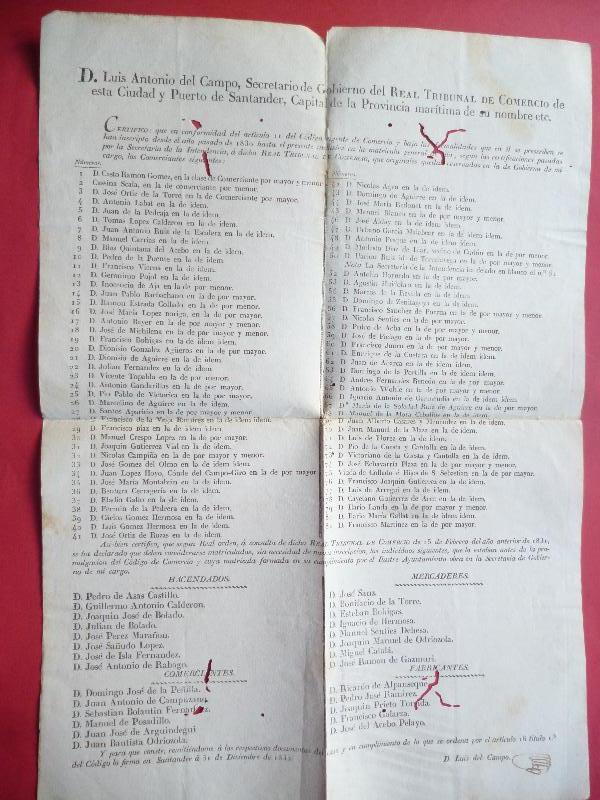 D. Luis Antonio del Campo, Secretario de Gobierno del REAL TRIBUNAL DE COMERCIO de
esta Ciudad y Puerto de Santander, Capital de la Provincia marítima de su nombre etc.
CERTIFICO: que en conformidad del artículo 11 del Código de Comercio y bajo las formalidades que en él se prescriben se
han inscripto desde el año pasado de 1830 hasta el presente en la matrícula general, segun las certificaciones pasadas
por la Secretaría de la Intendencia, á dicho REAL TRIBUNAL DE COMERCIO, que originales quedan reservados en la de Gobierno de mi
cargo, los Comerciantes siguientes:
Números.
1 D. Casto Ramon Gomez, en la clase de Comerciante por mayor y menor
2 Cosima Scala, en la de comerciante por menor.
3 D. José Ortiz de la Torre en la de Comerciante por mayor.
4 D. Antonio Labat en la de idem.
5 D. Juan de la Pedraja en la de idem.
6 D. Tomas Lopez Calderon en la de idem.
7 D. Juan Antonio Ruiz de la Escalera en la de idem.
8 D. Manuel Carrias en la de idem.
9 D. Blas Quintana del Acebo en la de idem.
10 D. Pedro de la Puente en la de idem.
11 D. Francisco Vierna en la de idem.
12 D. Gerónimo Pujol en la de idem.
13 D. Inocencio de Aja en la de por menor.
14 D. Juan Pablo Barbachano en la de por mayor.
15 D. Ramon Estrada Collado en la de por menor.
16 D. José María Lopez noriga, en la de por mayor.
17 D. Antonio Bayer en la de por mayor y menor.
18 D. José de Michilena en la de por mayor.
19 D. Francisco Bohigas en la de idem idem.
20 D. Dionisio Gonzalez Agüeros en la de por mayor.
21 D. Dionisio de Aguirre en la de idem.
22 D. Julian Fernandez en la de idem.
23 D. Vicente Topalda en la de por menor.
24 D. Antonio Gandarillas en la de por mayor.
25 D. Pio Pablo de Victorica en la de por mayor.
26 D. Marcelino de Aguirre en la de idem.
27 D. Santos Aparicio en la de por mayor y menor
D. Francisco de la Vega Ramirez en la de idem idem.
29 D. Francisco Diaz en la de idem idem.
30 D. Manuel Crespo Lopez en la de por mayor.
31 D. Joaquin Gutierrez Vial en la de idem.
32 D. Nicolas Campiña en la de por mayor y menor.
33 D. José Gomez del Olmo en la de idem idem.
34 D. Juan Lopez Hoyo, Conde del Campo-Giro en la de por mayor
35 D. José María Montalván en la de idem.
36 D. Bentura Cerragería en la de idem.
37 D. Eladio Gallo en la de idem.
38 D. Fermin de la Pedrera en la de idem.
39 D. Carlos Gomez Hermosa en la de idem.
40 D. Luis Gomez Hermosa en la de idem.
41 D. José Ortiz de Rozas en la de idem.
D. Nicolas Aqro en la de idem.
D. Domingo de Aguirre en la de idem.
D. José María Redonet en la de idem.
D. Manuel Blanco en la de por mayor y menor.
D. José Aldaz en la de idem idem.
D. Urbano García en la de idem.
D. Antonio Porque en la de idem idem.
D. Modesto Diaz de vecino de Colindres en la de por menor.
D. Ramon Ruiz id. de Torrelavega en la de por mayor y menor.
Nota La Secretaría de la Intendencia ha dejado en blanco el nº 51
52 D. Antolin Heredia en la de por mayor.
D. Agustin en la de idem.
54 D. Marcos de la Revilla en la de idem.
D. Domingo de Zunzunaga en la de idem.
56 D. Francisco Sanchez de Porrua en la de por mayor y menor.
D. Nicolas Senties en la de por mayor.
58 D. Pedro de Acha en la de por mayor y menor.
D. José de Pielago en la de por mayor.
D. Francisco Junco en la de por mayor y menor.
61 D. Enriquez de la Cuétara en la de idem idem.
62 D. Juan de Acarca en la de idem idem.
63 D. Domingo de la Portilla en la de idem idem.
D. Andres Fernandez Renedo en la de por mayor.
D. Antonio en la de por mayor y menor.
66 D. Ignacio Antonio de Garmendia en la de por mayor.
Dª María de la Soledad Ruiz de Aguirre en la de por mayor.
D. Manuel de la Mora Ceballos en la de idem
D. Juan Alberto Casares y Menendez en la de idem.
D. Juan Manuel de la Maza en la de idem.
D. Luis de Florez en la de idem.
D. Pio de la Cuesta y Cantolla en la de idem.
D. Victoriana de la Cuesta y Cantolla en la de idem.
D. José Echavarria Plaza en la de por mayor y menor.
D. Viuda de Collado é Hijos de S. Sebastian en la de por mayor.
D. Francisco Joaquin Gutierrez en la de idem.
D. Luis de Arregui en la de idem.
D. Cayetano Gutierrez de Arce en la de idem.
D. Ilario Landa en la de por mayor y menor.
D. Ilario María Gallat en la de idem idem.
D. Francisco Martinez en la de por mayor.
Asi bien certifico, que segun Real órden, á consulta de dicho REAL TRIBUNAL DE COMERCIO de 15 de Febrero del año anterior de 1831,
se ha declarado que deben considerarse matriculados, sin necesidad de nueva inscripcion, los individuos siguientes, que lo estaban antes de la pro-
mulgacion del Código de Comercio y cuya matrícula formada en su cumplimiento por el Ilustre Ayuntamiento obra en la Secretaría de Gobier-
no de mi cargo.
HACENDADOS.
D. Pedro de Azas Castillo.
D. Guillermo Antonio Calderon.
D. Joaquin José de Bolado.
D. Julian de Bolado.
D. José Perez Marañon.
D. José Sañudo Lopez.
D. José de Isla Fernandez.
D. José Antonio de Rabago.
COMERCIANTES.
D. Domingo José de la Peñilla.
D. Juan Antonio de Campuzano.
D. Sebastian Bolantin Fernandez.
D. Manuel de Posadillo.
D. Juan José de Arguindegui
D. Juan Bautista Odriozola.
MERCADERES.
D. José Sanz.
D. Bonifacio de la Torre.
D. Esteban Bohigas.
D. Ignacio de Hermosa.
D. Manuel Senties Dehesa.
D. Joaquin Manuel de Odriozola.
D. Miguel Catalá.
D. José Ramon de Gazmuri.
FABRICANTES.
D. Ricardo de Alpanseque.
D. Pedro José Ramirez.
D. Joaquin Prieto Torgida.
D. Francisco Galarza.
D. José del Acebo Pelayo.
Y para que conste, remitiéndome á los respectivos documentos del caso y en cumplimiento de lo que se ordena por el artículo 16 título 1º
del Código la firmo en Santander á 31 de Diciembre de 1832.
D. Luis del Campo.